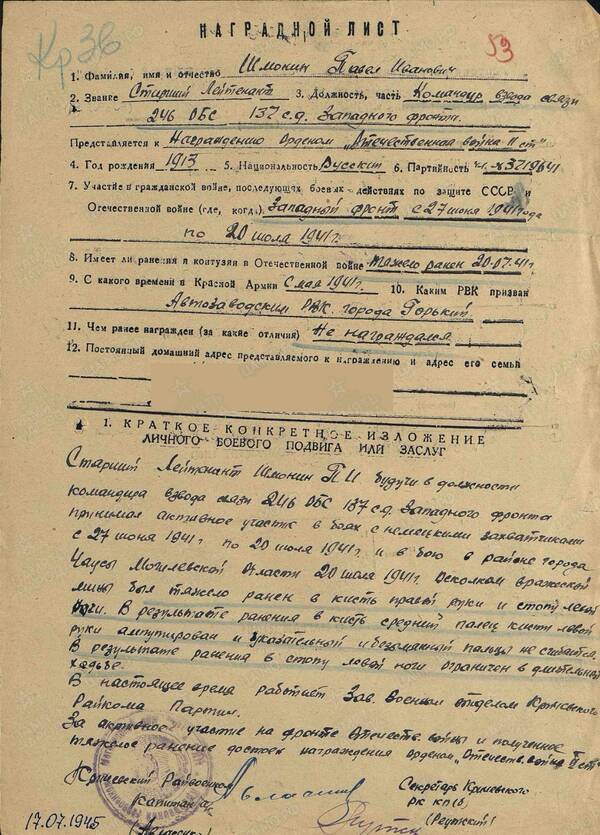 Кр 3в
53
НАГРАДНОЙ ЛИСТ
1. Фамилия, имя и отчество Шмонин Павел Иванович
2. Звание Старший Лейтенант 3. Должность, часть Командир взвода связи
246 ОБС 137 с.д. Западного фронта.
Представляется к Награждению Орденом „Отечественная война II ст"
4. Год рождения 1913 5. Национальность Русский 6. Партийность
7. Участие в гражданской войне, последующих боевых действиях по защите СССР и
Отечественной войне (где, когда) Западной фронт с 27 июня 1941 года
по 20 июля 1941г.
8. Имеет ли ранения и контузии в Отечественной войне тяжело ранен 20.07.41г
9. С какого времени в Красной Армии с мая 1941г. 10. Каким РВК призван
Автозаводским РВК. города Горький.
11. Чем ранее награжден (за какие отличия) Не награждался
12. Постоянный домашний адрес представляемого к награждению и адрес его семьи
1. КРАТКОЕ КОНКРЕТНОЕ ИЗЛОЖЕНИЕ
ЛИЧНОГО БОЕВОГО ПОДВИГА ИЛИ ЗАСЛУГ
Старший Лейтенант Шмонин П И будучи в должности
командира взвода связи 246 ОБС 137 с.д. Западного фронта
принимал активное участие в боях с немецкими захватчиками
с 27 июня 1941г по 20 июля 1941г и в бою в районе города
Чаусы Могилевской области 20 июля 1941г. осколком вражеской
мины был тяжело ранен в кисть правой руки и стопу левой
ноги. В результате ранения в кисть средний палец кисти левой
руки ампутирован и указательный и безымянный пальцы не сгибаются.
В результате ранения в стопу левой ноги ограничен в длительной
ходьбе.
В настоящее время работает Зав. Военным отделом
Райкома Партии.
За активное участие на фронте Отечеств. войны и полученное
тяжелое ранение достоин награждения орденом „Отечеств. война II ст"
Райвоенком
капитан а/с
Секретарь
РК КП(б)
17.07.1945